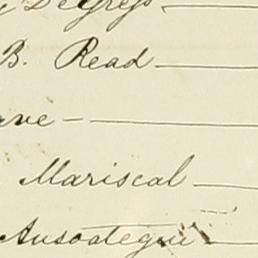 y DeGress
B. Read
ave
Mariscal
Ausoategui